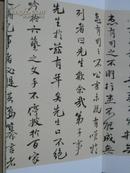 患有司之不明行患不能成無
患有司之不公言未既有笑於
列者曰先生欺余哉弟子事
先生於茲有年矣先生口不絕
吟於六藝之文手不停披於百家